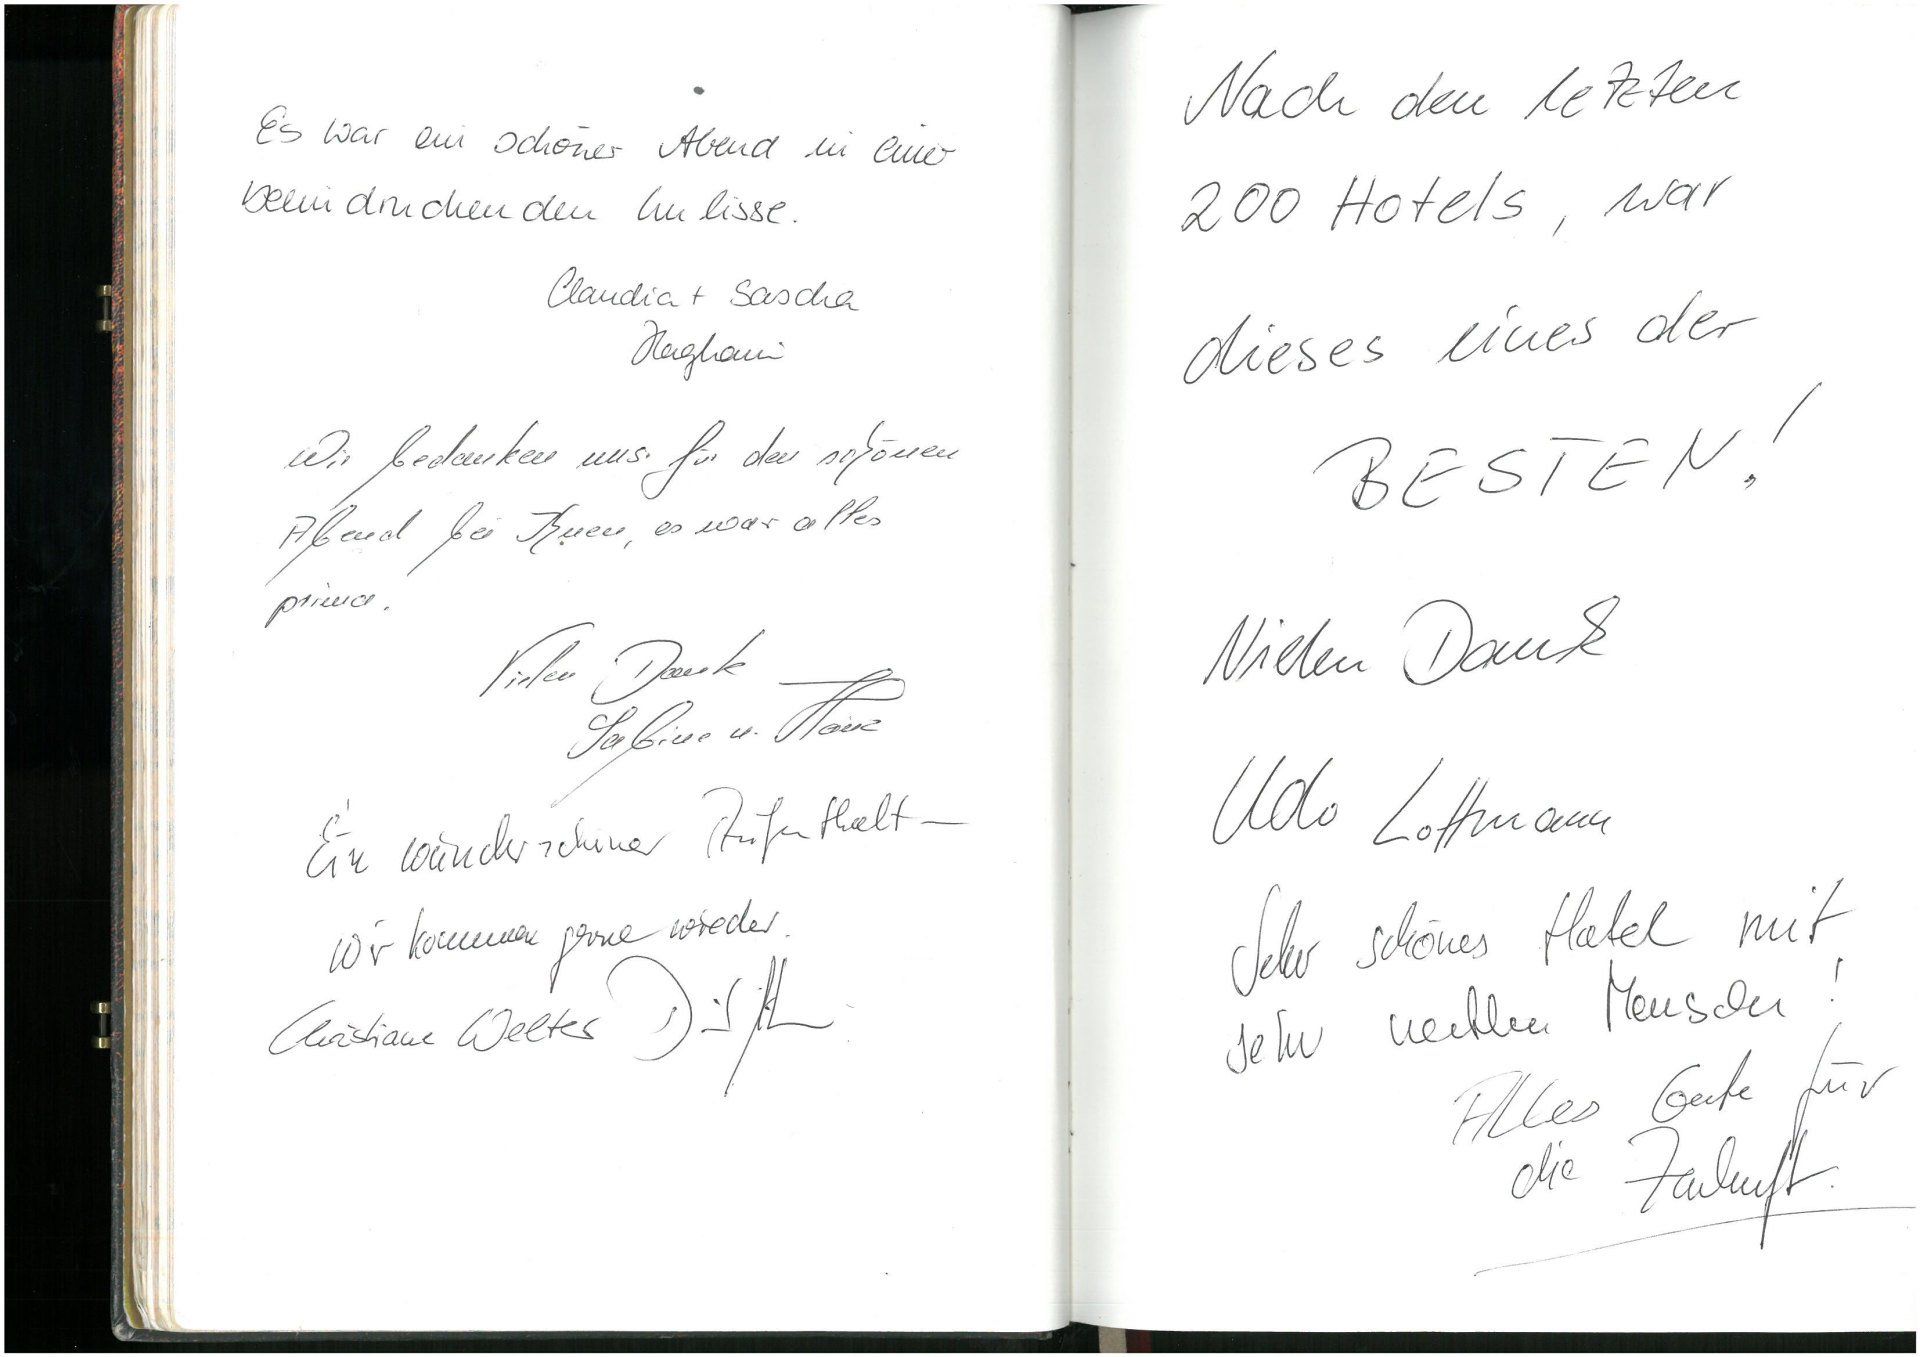 Es war ein schöner Abend in einer
beeindruckenden Kulisse.
Claudia + Sascha
Haghani
Wir bedanken uns für den schönen
Abend bei Ihnen, es war alles
prima.
Vielen Dank
Sabine u.
Ein wunderschöner Aufenthalt -
wir kommen gerne wieder.
Christiane Welter
Nach den letzten
200 Hotels, war
dieses eines der
BESTEN!
Vielen Dank
Udo Lottmann
Sehr schönes Hotel mit
sehr netten Menschen!
Alles Gute für
die Zukunft.